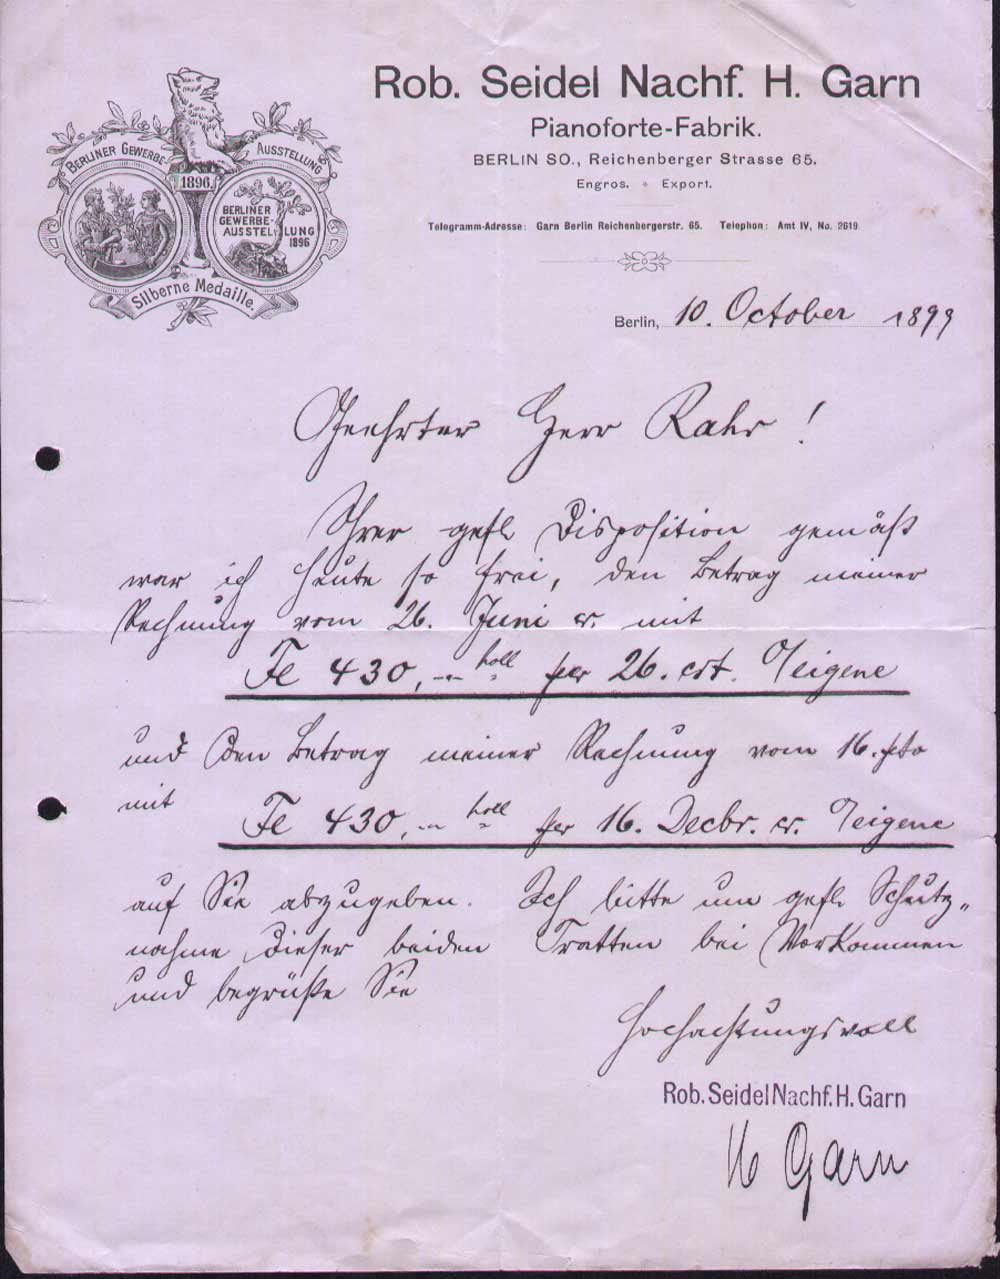 Rob. Seidel Nachf. H. Garn
Pianoforte-Fabrik.
BERLIN SO., Reichenberger Strasse 65.
Engros. Export.
Telegramm-Adresse: Garn Berlin Reichenbergerstr. 65. Telephon: Amt IV, No. 2619
BERLINER GEWERBE-AUSSTELLUNG
1896.
BERLINER
GEWERBE-
AUSSTELLUNG
1896
Silberne Medaille.
Berlin, 10. October 1899
Geehrter Herr Rahr!
Ihrer gefl. Disposition gemäß
war ich heute so frei, den Betrag meiner
Rechnung vom 26. Juni cr. mit
430,- holl per 26. crt. Eigene
und den Betrag meiner Rechnung vom 16.
mit
430,- holl per 16. Decbr. cr. Eigene
auf Sie abzugeben. Ich bitte um gefl. Schutz„
nahme dieser beiden Tratten bei Vorkommen
und begrüße Sie
Hochachtungsvoll
Rob. Seidel Nachf. H. Garn
H Garn